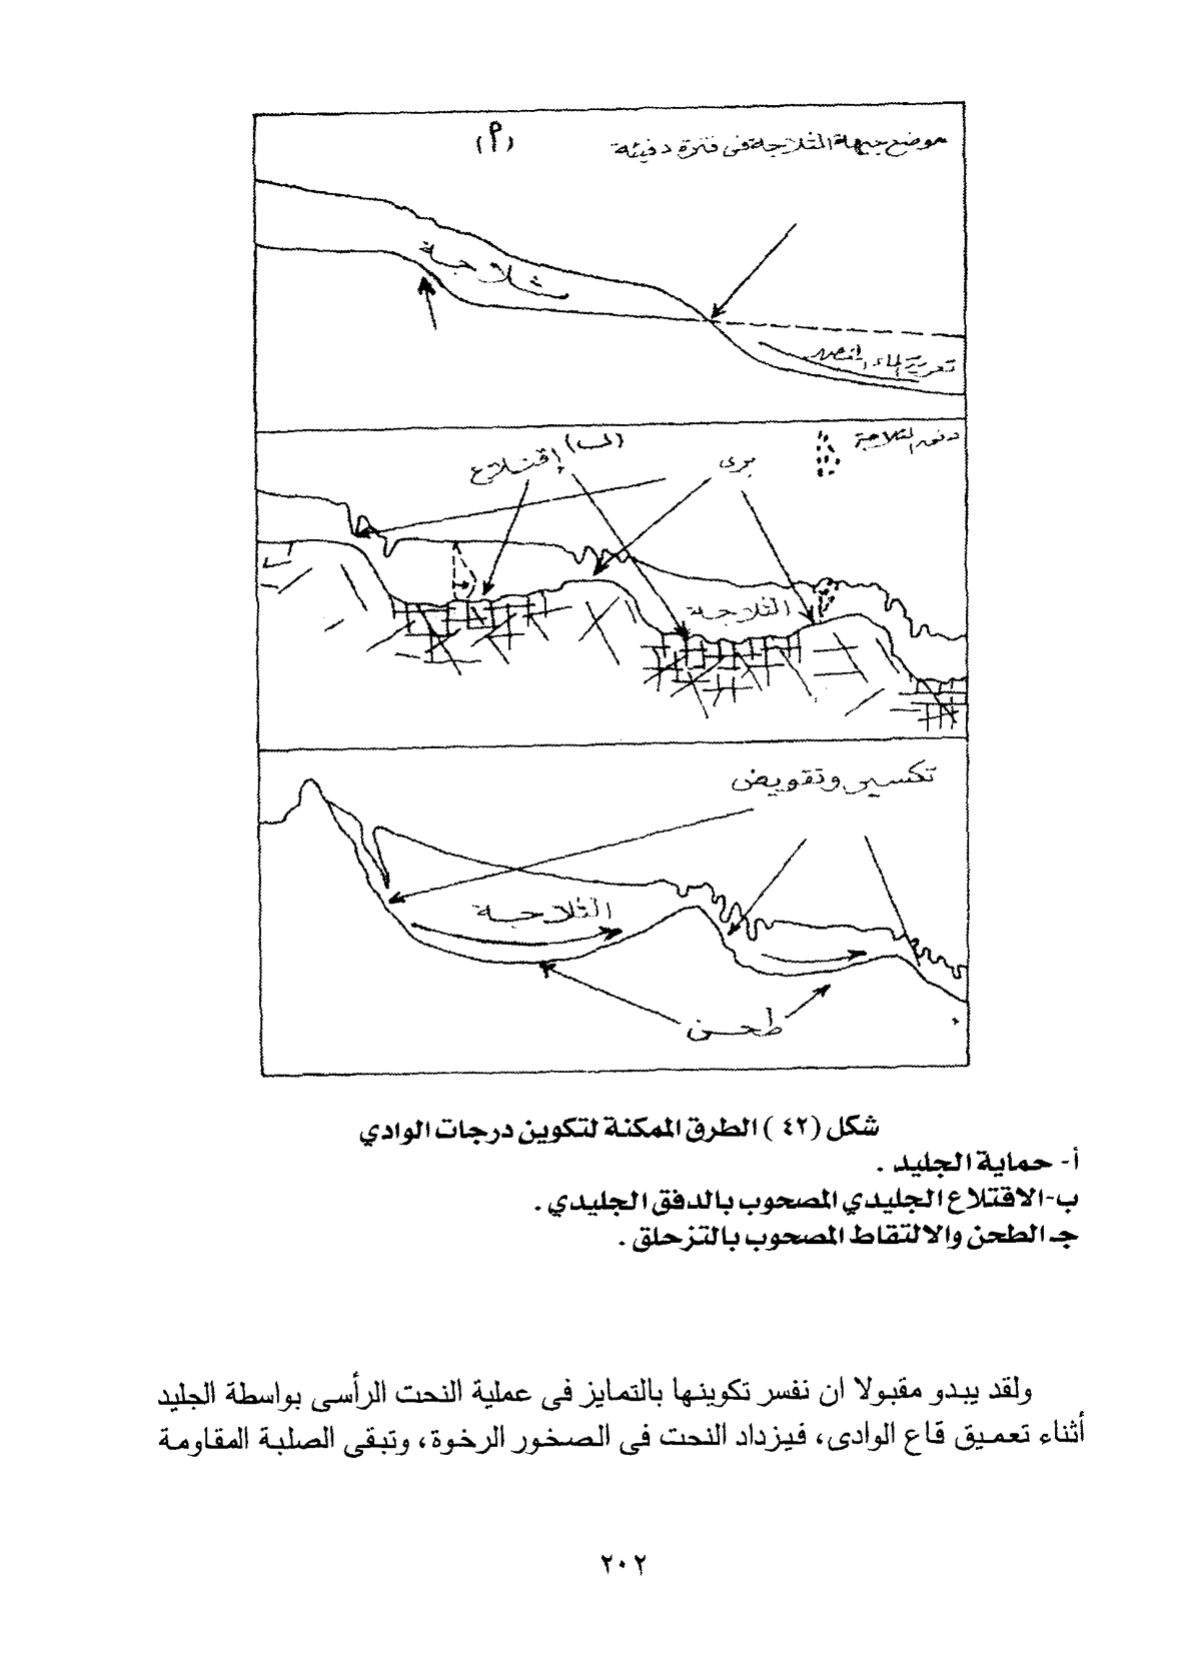 (أ)
موضع جبهة الثلاجة فى فترة دفيئة
ثلاجة
تعرية الماء
(ب)
إقتلاع
برى
الثلاجة
الثلاجة
تكسير وتقويض
الثلاجة
طحن
شكل (٤٢) الطرق الممكنة لتكوين درجات الوادي
أ- حماية الجليد .
ب-الاقتلاع الجليدي المصحوب بالدفق الجليدي .
جـ الطحن والالتقاط المصحوب بالتزحلق .
ولقد يبدو مقبولا ان نفسر تكوينها بالتمايز فى عملية النحت الرأسى بواسطة الجليد
أثناء تعميق قاع الوادى، فيزداد النحت فى الصخور الرخوة، وتبقى الصلبة المقاومة
٢٠٢